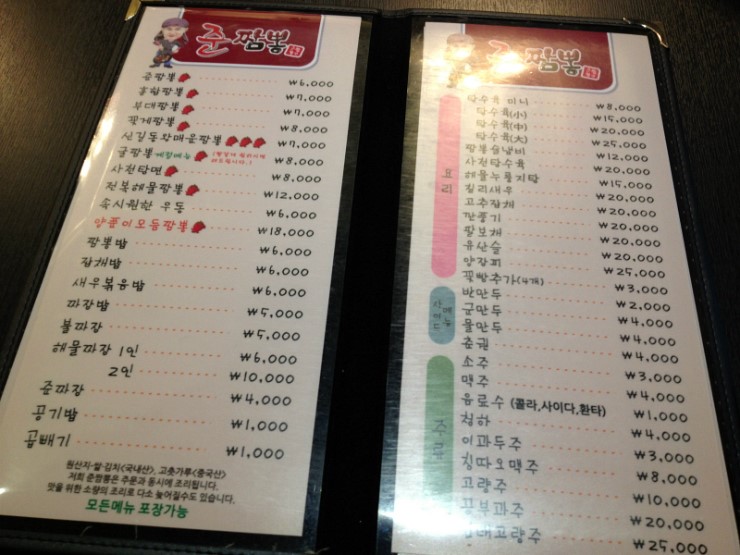 준 짬뽕
준짬뽕 ₩6,000
홍합짬뽕 ₩7,000
부대짬뽕 ₩7,000
꽃게짬뽕 ₩8,000
신길동왕매운짬뽕 ₩7,000
굴짬뽕 계절메뉴 ₩8,000
사천탕면 ₩8,000
전복해물짬뽕 ₩12,000
속시원한 우동 ₩6,000
양푼이모듬짬뽕 ₩18,000
짬뽕밥 ₩6,000
잡채밥 ₩6,000
새우볶음밥 ₩6,000
짜장밥 ₩5,000
불짜장 ₩5,000
해물짜장 1인 ₩6,000
2인 ₩10,000
준짜장 ₩4,000
공기밥 ₩1,000
곱빼기 ₩1,000
원산지-쌀·김치<국내산>, 고춧가루<중국산>
저희 준짬뽕은 주문과 동시에 조리됩니다.
맛을 위한 소량의 조리로 다소 늦어질수도 있습니다.
모든메뉴 포장가능
준 짬뽕
요리
탕수육 미니 ₩8,000
탕수육(小) ₩15,000
탕수육(中) ₩20,000
탕수육(大) ₩25,000
짬뽕술냄비 ₩12,000
사천탕수육 ₩20,000
해물누룽지탕 ₩15,000
칠리새우 ₩20,000
고추잡채 ₩20,000
깐풍기 ₩20,000
팔보채 ₩20,000
유산슬 ₩20,000
양장피 ₩25,000
꽃빵추가(4개) ₩3,000
반만두 ₩2,000
군만두 ₩4,000
물만두 ₩4,000
춘권 ₩4,000
주류
소주 ₩3,000
맥주 ₩4,000
음료수 (콜라,사이다,환타) ₩1,000
청하 ₩4,000
이과두주 ₩3,000
칭따오맥주 ₩8,000
고량주 ₩10,000
공부과주 ₩20,000
고량주 ₩25,000